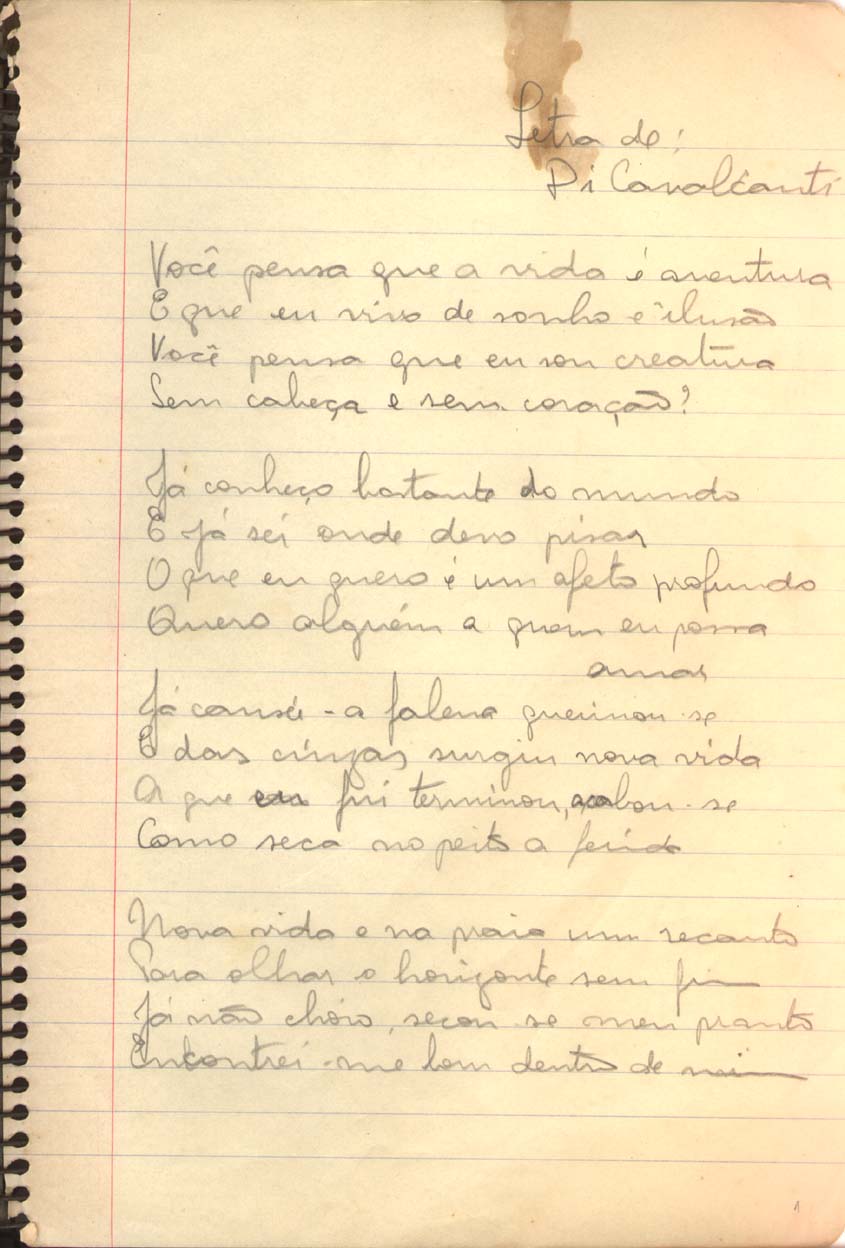 Letra de:
Di Cavalcanti
Você pensa que a vida é aventura
E que eu vivo de sonho e ilusão
Você pensa que eu sou creatura
Sem cabeça e sem coração?
Já conheço bastante do mundo
E já sei onde devo pisar
O que eu quero é um afeto profundo
Quero alguém a quem eu possa
amar
Já cansei - a falena queimou-se
E das cinzas surgiu nova vida
A que fui terminou, acabou-se
Como seca no peito a ferida
Nova vida e na praia um recanto
Para olhar o horizonte sem fim
Já não chóro, secou-se meu pranto
Encontrei-me bem dentro de mim
1